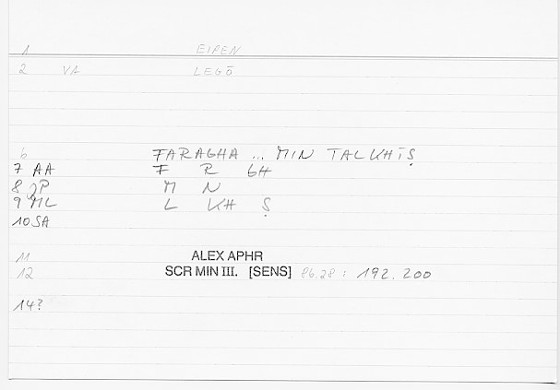 1 EIPEN
2 VA LEGŌ
6 FARAGHA ... MIN TALKHĪṢ
7 AA F R GH
8 JP M N
9 ML L KH Ṣ
10 SA
11 ALEX APHR
12 SCR MIN III. [SENS] 86.28 : 192.200
14?